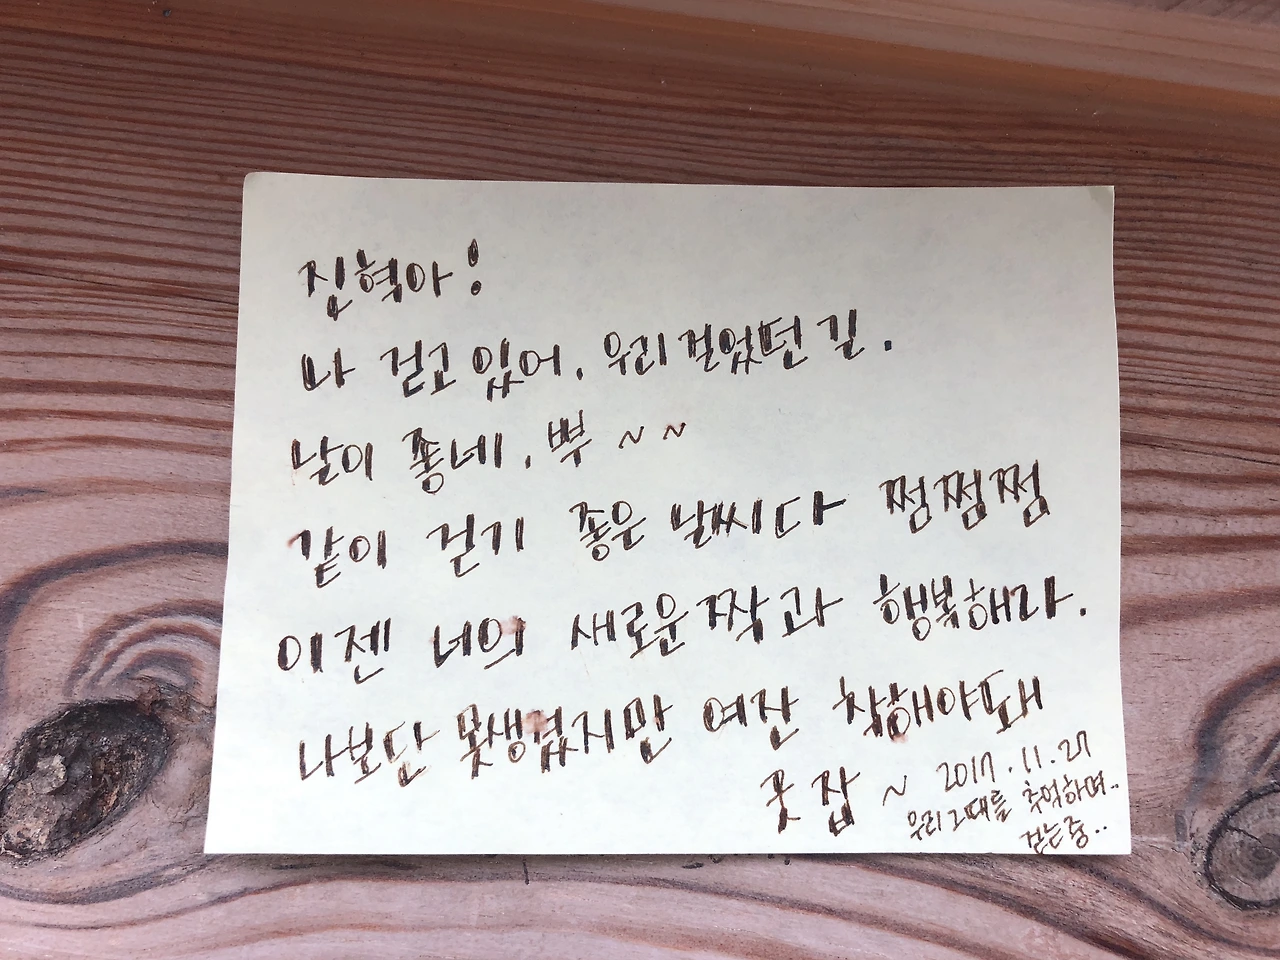 진혁아!
나 걷고 있어. 우리 걸었던 길.
날이 좋네. 뿌~~
같이 걷기 좋은 날씨다 쩜쩜쩜
이젠 너의 새로운 짝과 행복해라.
나보단 못생겼지만 여잔 착해야돼
굿잡~ 2017.11.27
우리 그때를 추억하며..
걷는중..